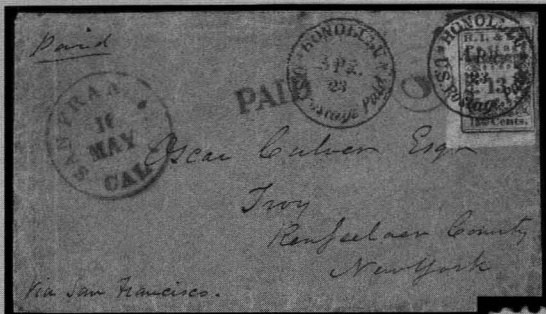 Paid
HONOLULU
U.S. Postage Paid
APR.
23
PAID
HONOLULU
U.S. Postage Paid
H.I. & U.S.
13
Cents.
SAN FRAN
16
MAY
CAL.
Oscar Culver Esqr
Troy
Rensselaer County
New York
Via San Francisco.